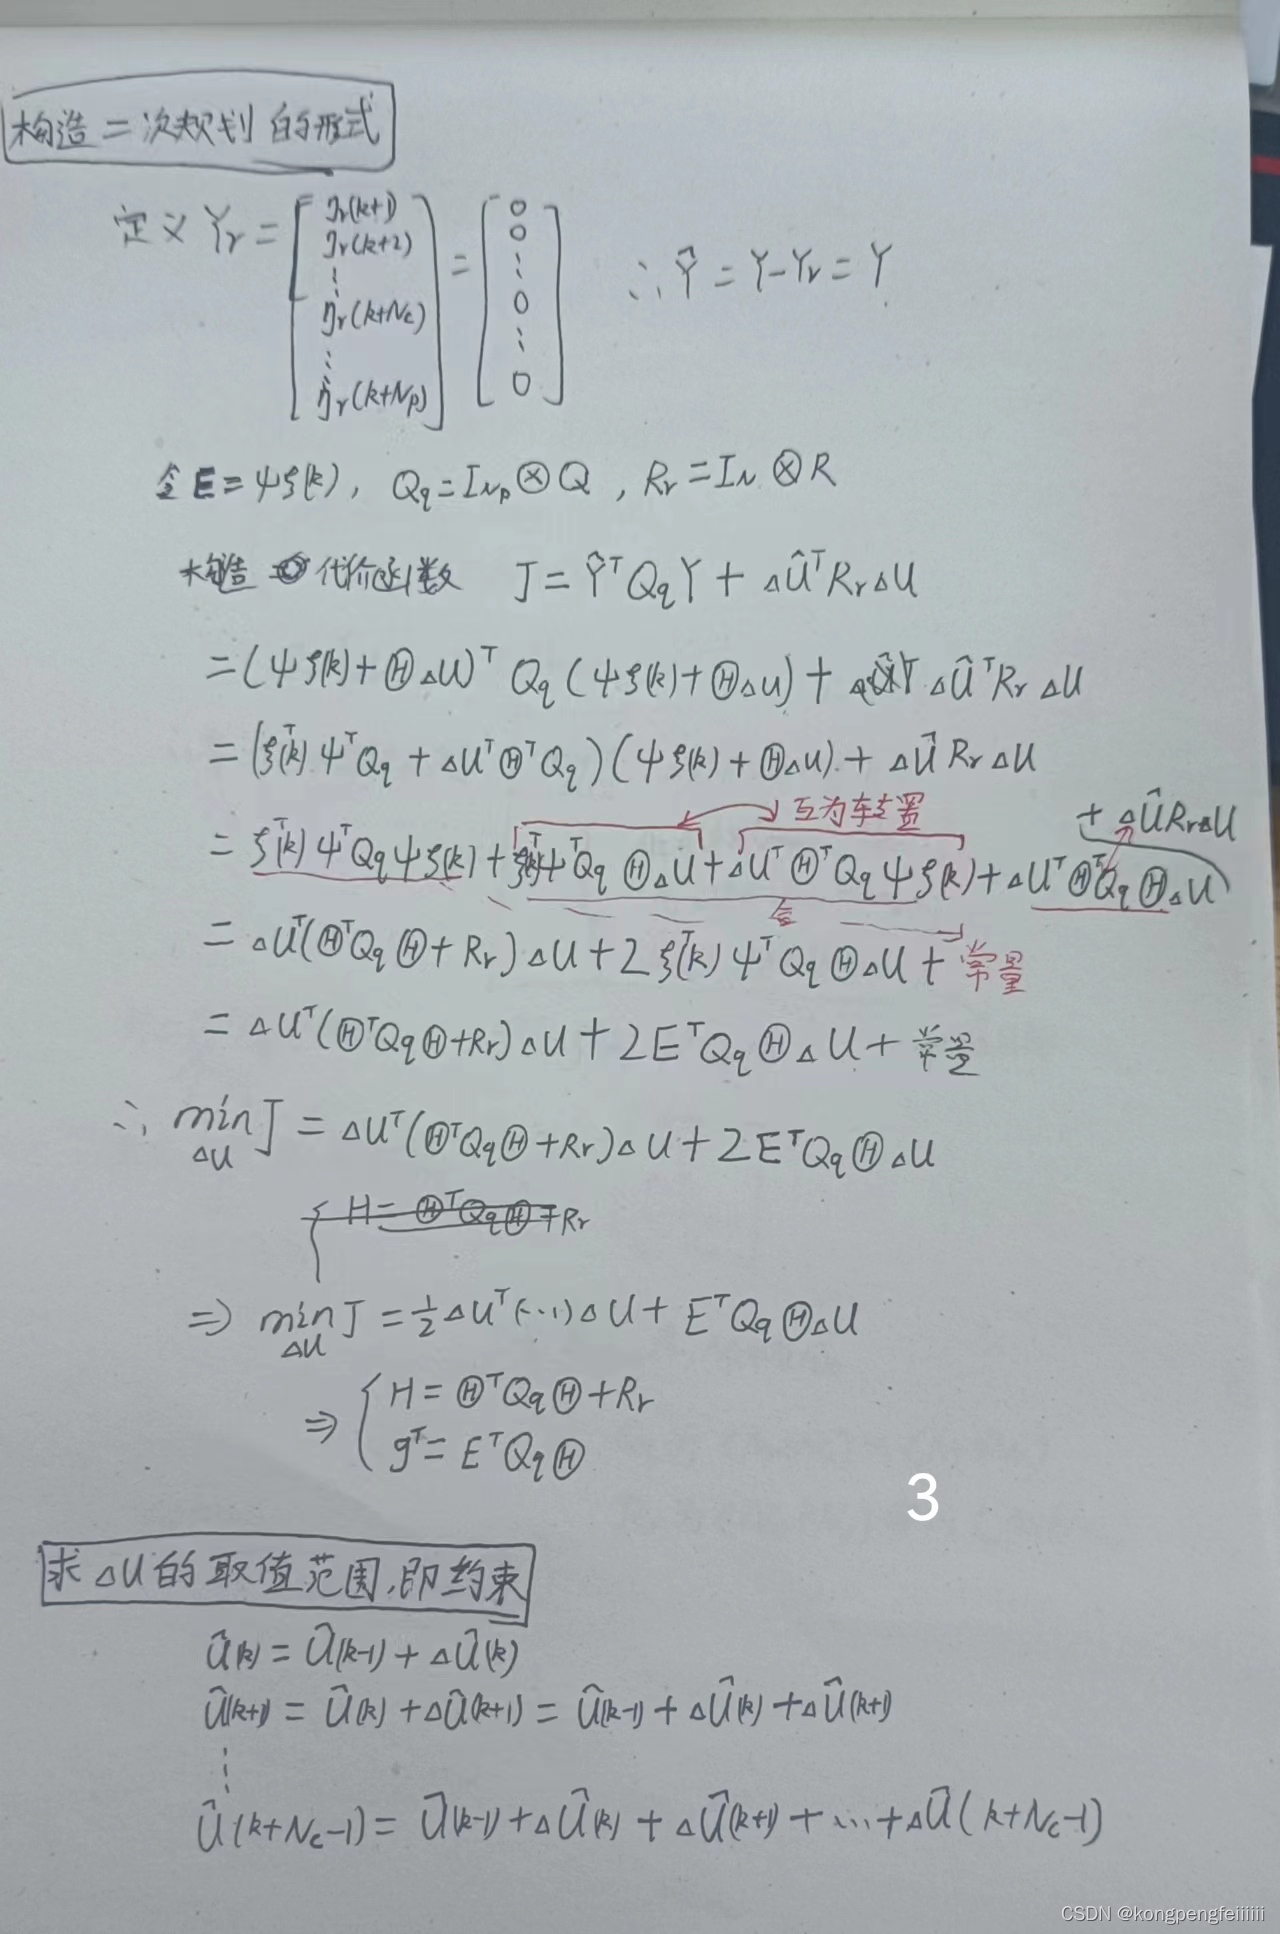 构造二次规划的形式
定义 Yr = [ηr(k+1) ηr(k+2) ⋮ ηr(k+Nc) ⋮ ηr(k+Np)] = [0 0 ⋮ 0 ⋮ 0] ∴ Ŷ = Y-Yr = Y
令E=ψξ(k), Qq=INp⊗Q, Rr=IN⊗R
构造 代价函数 J = Ŷᵀ Qq Y + ΔÛᵀ Rr ΔU
= (ψξ(k)+ΘΔU)ᵀ Qq (ψξ(k)+ΘΔU) + ΔÛᵀ Rr ΔU
= (ξᵀ(k) ψᵀQq + ΔUᵀΘᵀQq)(ψξ(k)+ΘΔU) + ΔÛ Rr ΔU
互为转置
+ ΔÛ Rr ΔU
= ξᵀ(k) ψᵀQqψξ(k) + ξᵀ(k)ψᵀQqΘΔU + ΔUᵀΘᵀQqψξ(k) + ΔUᵀΘᵀQqΘΔU
合
= ΔUᵀ(ΘᵀQqΘ+Rr)ΔU + 2ξᵀ(k)ψᵀQqΘΔU + 常量
= ΔUᵀ(ΘᵀQqΘ+Rr)ΔU + 2EᵀQqΘΔU + 常量
∴ min J = ΔUᵀ(ΘᵀQqΘ+Rr)ΔU + 2EᵀQqΘΔU
ΔU
H = ΘᵀQqΘ+Rr
⇒ min J = ½ΔUᵀ(···)ΔU + EᵀQqΘΔU
ΔU
⇒ { H = ΘᵀQqΘ+Rr
gᵀ = EᵀQqΘ
3
求ΔU的取值范围,即约束
Û(k) = Û(k-1) + ΔÛ(k)
Û(k+1) = Û(k) + ΔÛ(k+1) = Û(k-1) + ΔÛ(k) + ΔÛ(k+1)
⋮
Û(k+Nc-1) = Û(k-1) + ΔÛ(k) + ΔÛ(k+1) + ... + ΔÛ(k+Nc-1)
CSDN @kongpengfeiiiiii